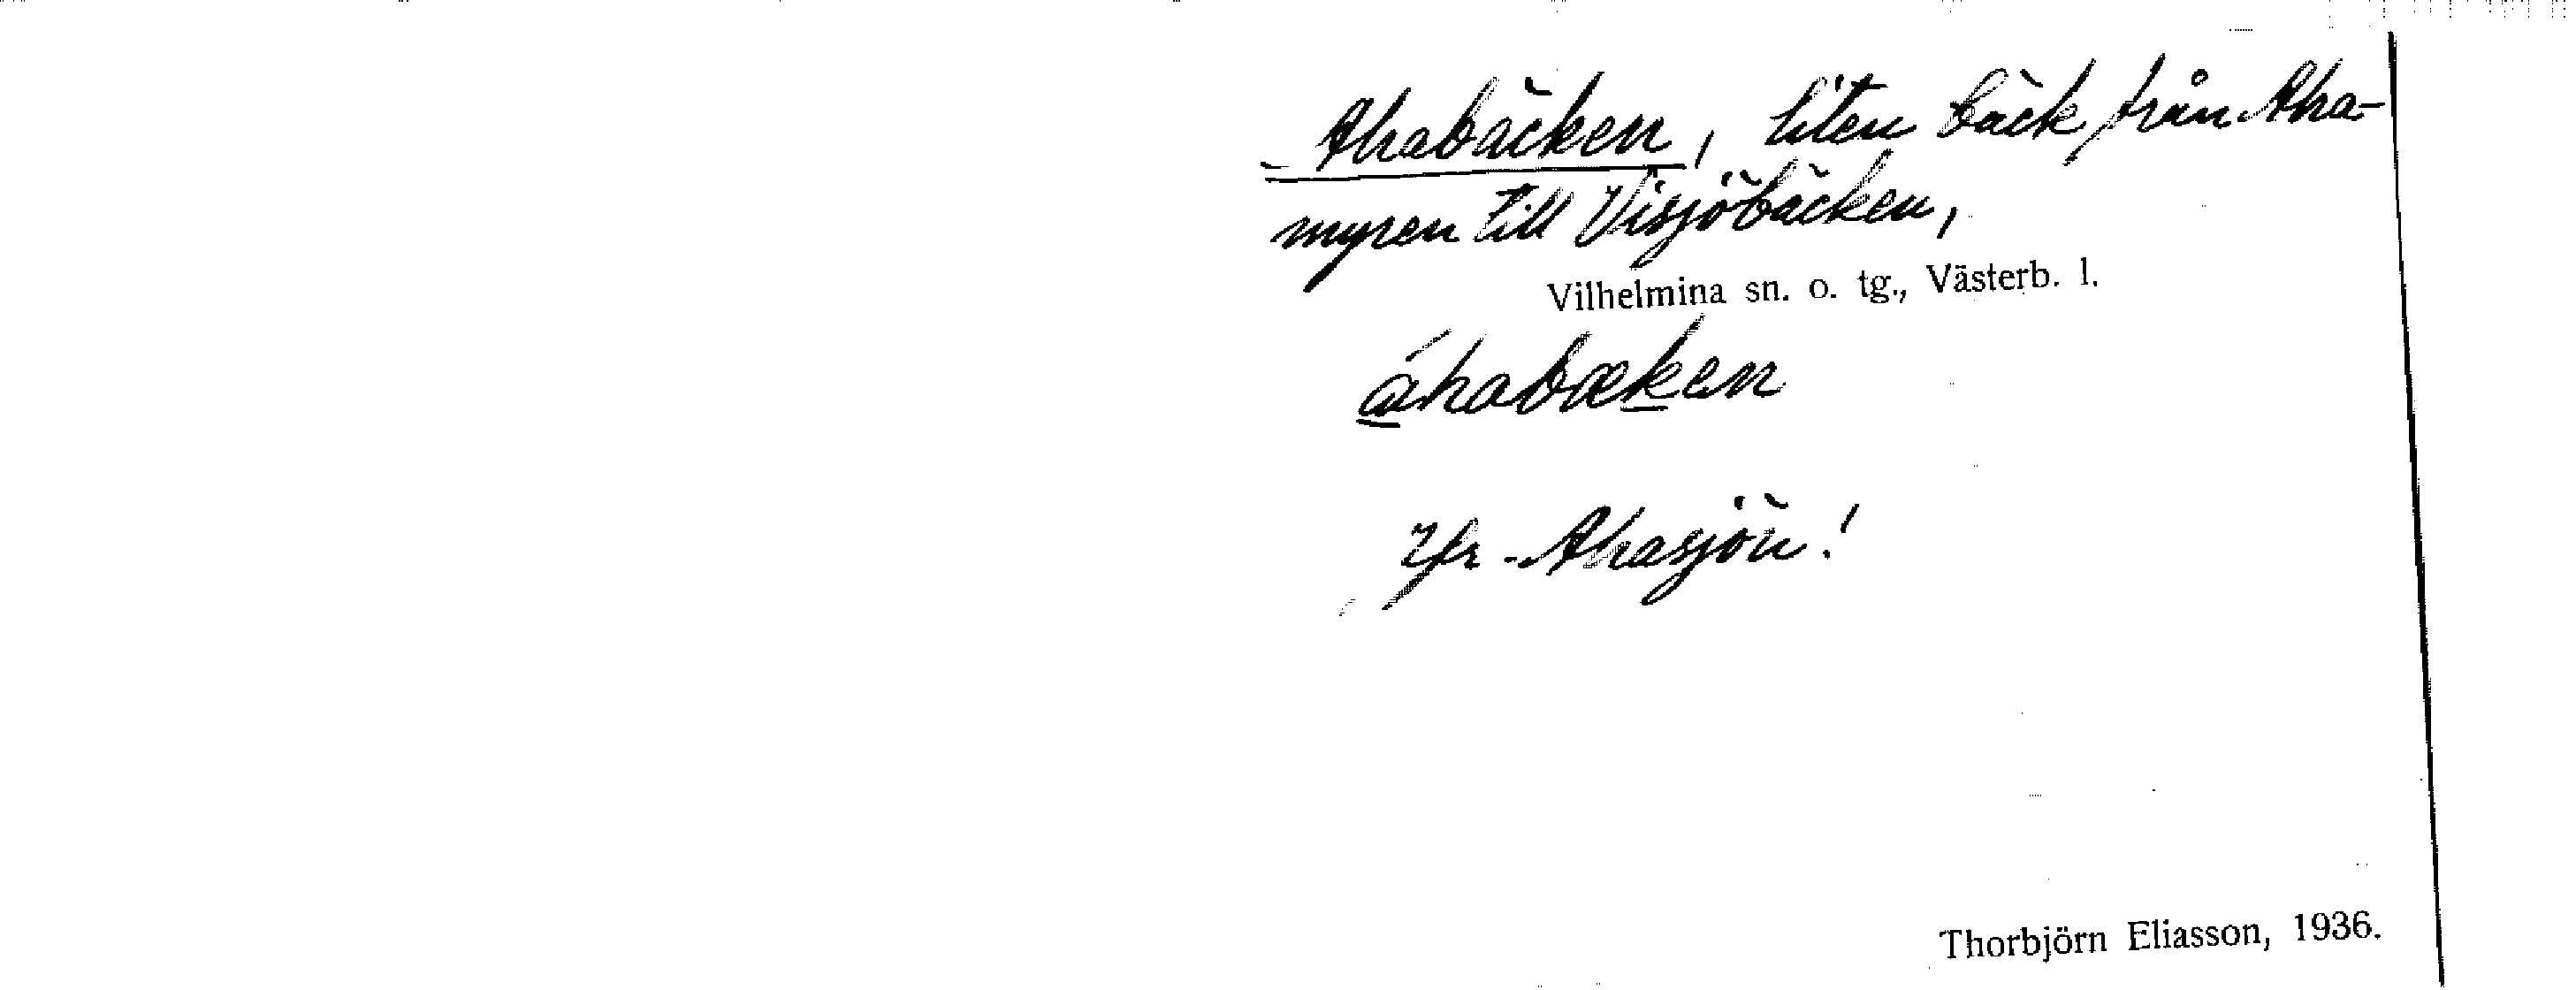 Ahabäcken, liten bäck från Aha-
myren till Visjöbäcken,
Vilhelmina sn. o. tg., Västerb. l.
áhabæken
Jfr Ahasjön!
Thorbjörn Eliasson, 1936.